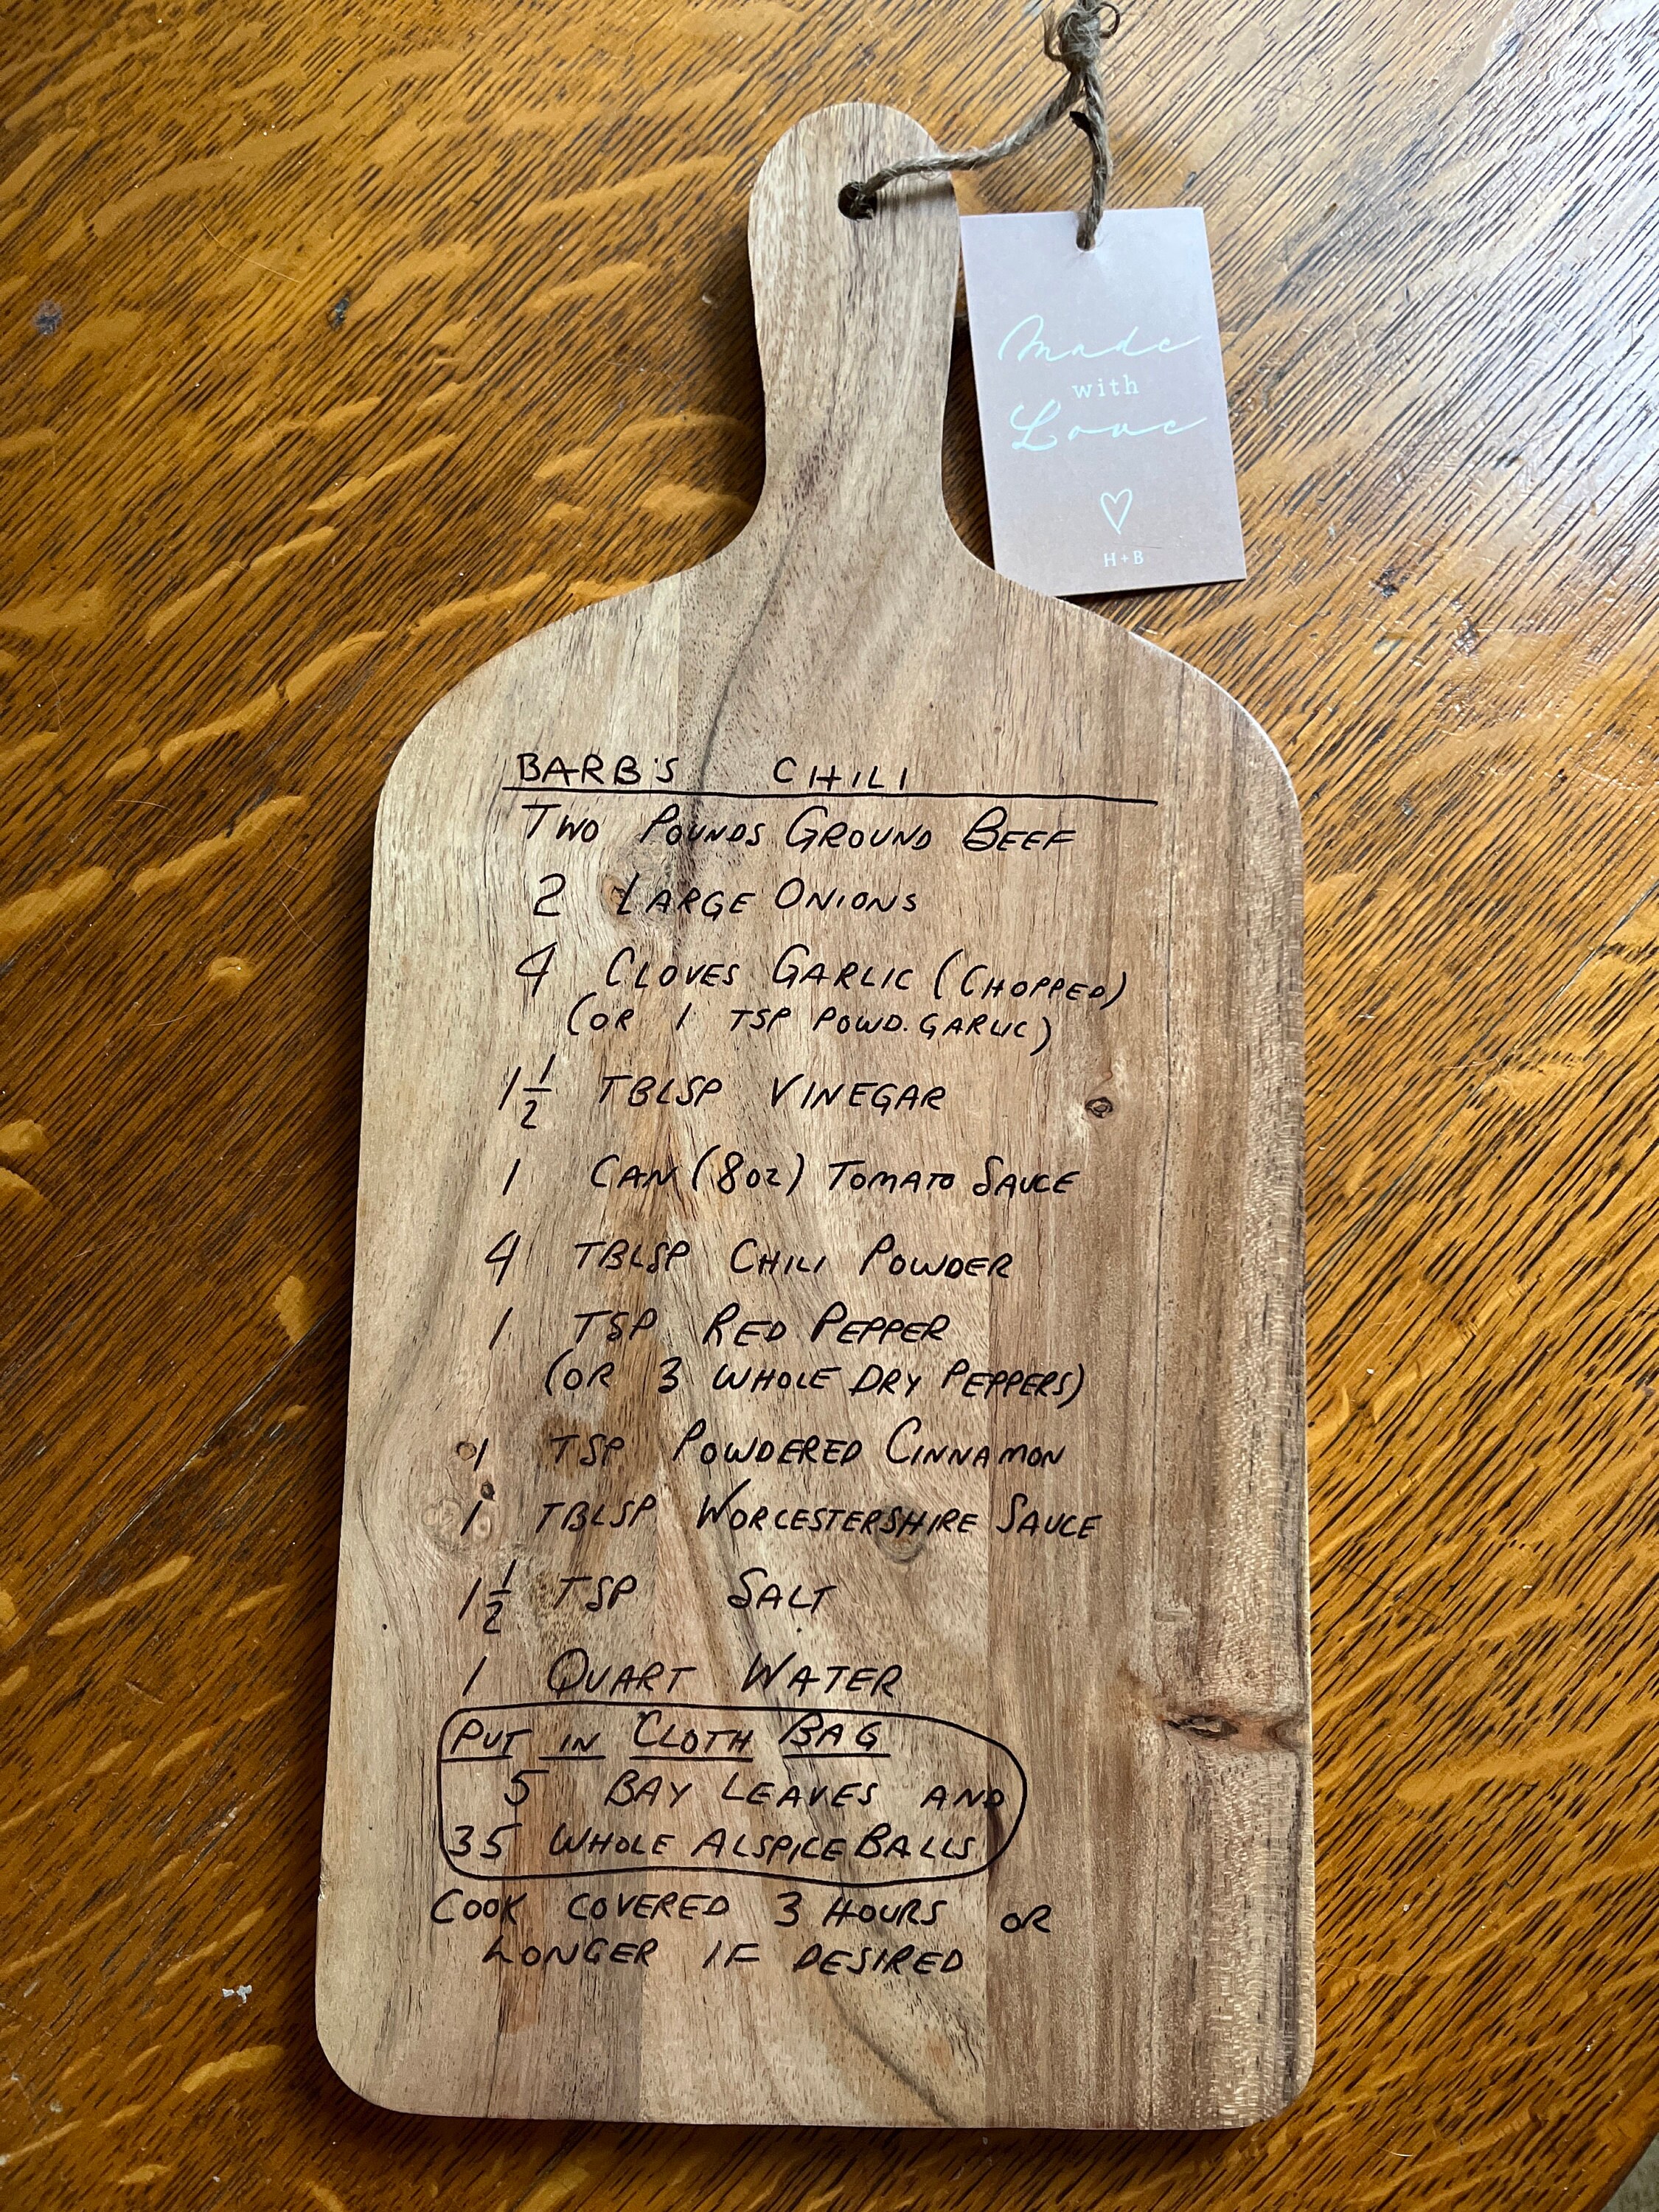 Made
with
Love
H+B
BARB'S CHILI
TWO POUNDS GROUND BEEF
2 LARGE ONIONS
4 CLOVES GARLIC (CHOPPED)
(OR 1 TSP POWD. GARLIC)
1 1/2 TBLSP VINEGAR
1 CAN (8 OZ) TOMATO SAUCE
4 TBLSP CHILI POWDER
1 TSP RED PEPPER
(OR 3 WHOLE DRY PEPPERS)
1 TSP POWDERED CINNAMON
1 TBLSP WORCESTERSHIRE SAUCE
1 1/2 TSP SALT
1 QUART WATER
PUT IN CLOTH BAG
5 BAY LEAVES AND
35 WHOLE ALSPICE BALLS
COOK COVERED 3 HOURS OR
LONGER IF DESIRED